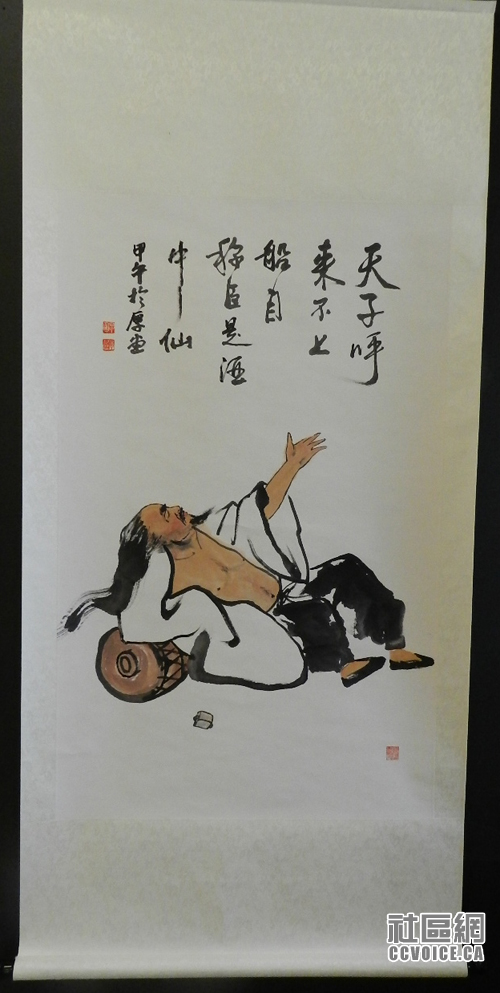 天子呼
来不上
船自
称臣是酒
中仙
甲午於厚堂
社區網
CCVOICE.CA